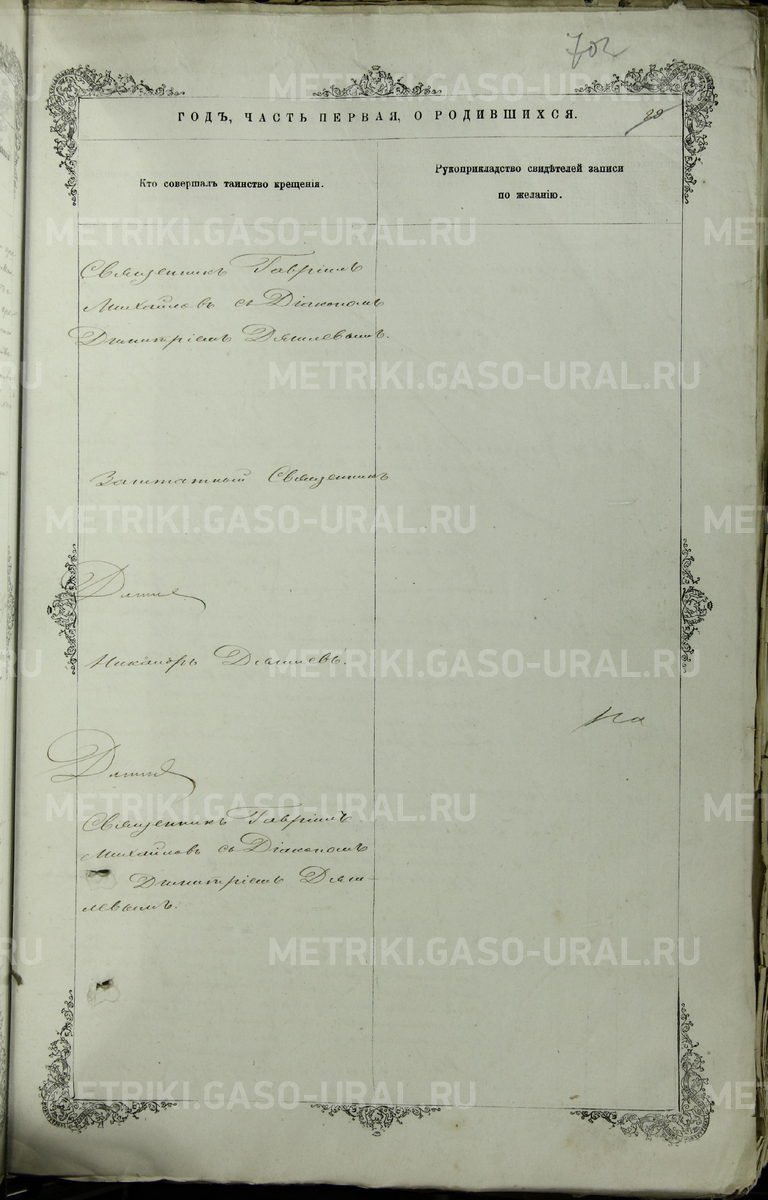 702
ГОДЪ, ЧАСТЬ ПЕРВАЯ, О РОДИВШИХСЯ.
29
Кто совершалъ таинство крещенія.
Рукоприкладство свидѣтелей записи
по желанію.
Священникъ Гавріилъ
Михайловъ съ Діакономъ
Димитріемъ
Заштатный Священникъ
Никаноръ
Священникъ Гавріилъ
Михайловъ съ Діакономъ
Димитріемъ
METRIKI.GASO-URAL.RU